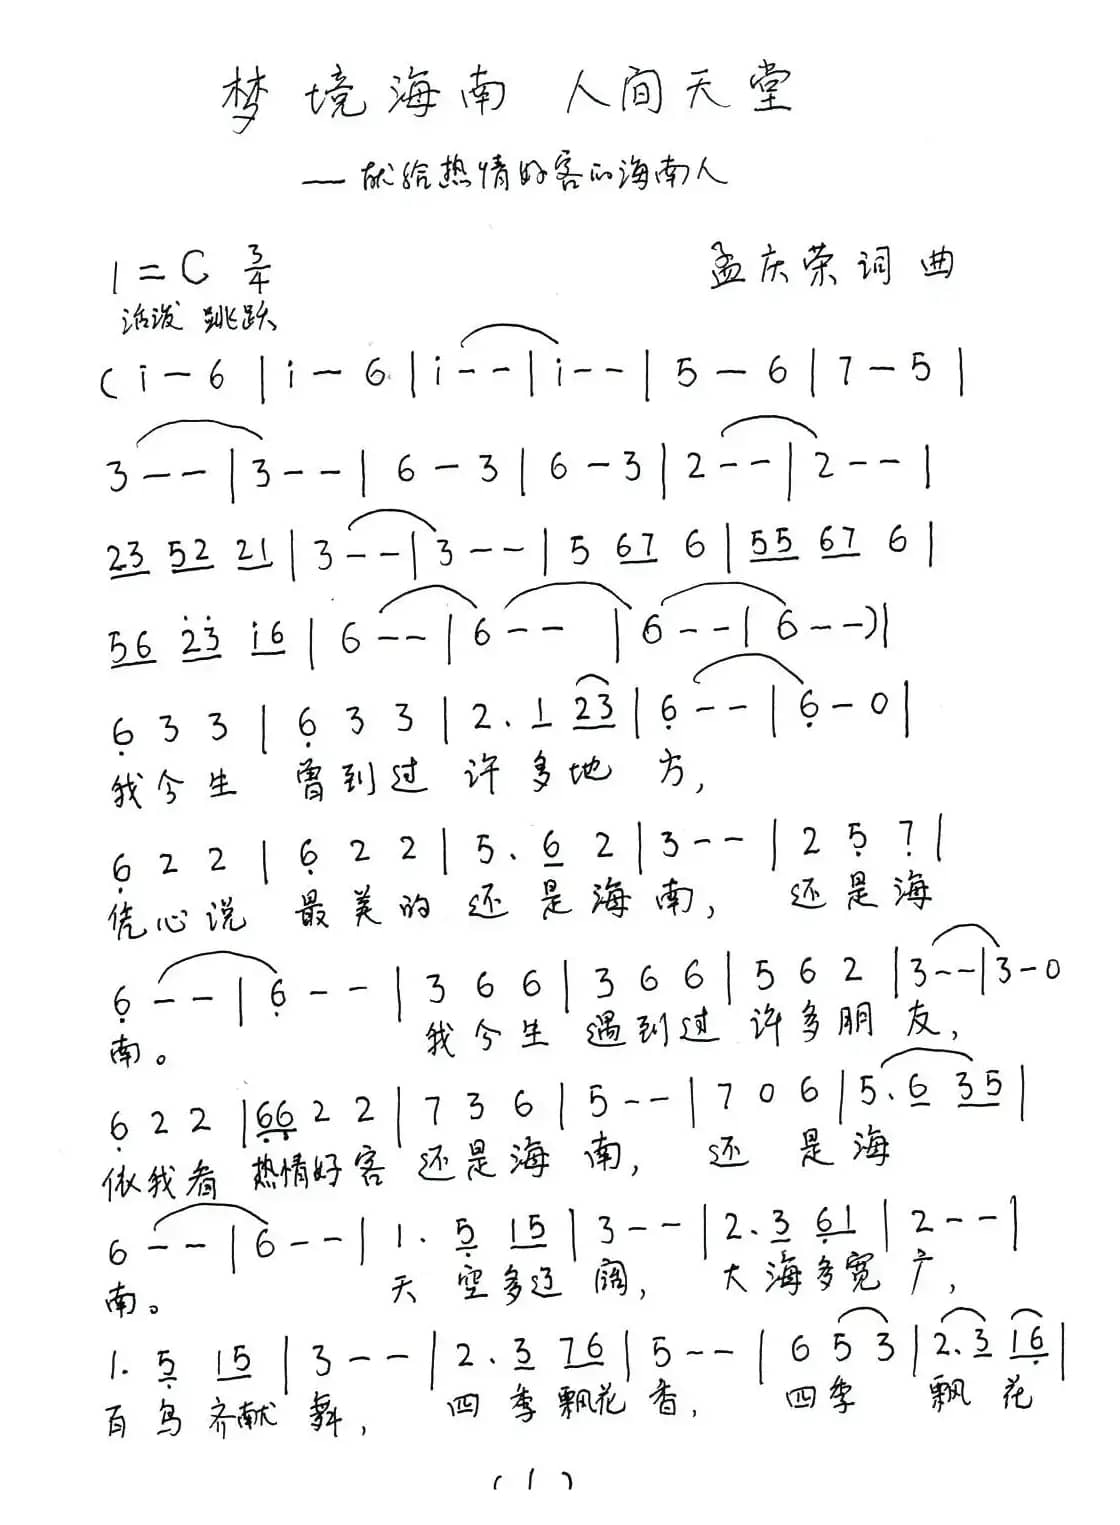 梦境海南 人间天堂
——献给热情好客的海南人
1=C 3/4
孟庆荣词曲
活泼 跳跃
(i - 6 | i - 6 | i - - | i - - | 5 - 6 | 7 - 5 |
3 - - | 3 - - | 6 - 3 | 6 - 3 | 2 - - | 2 - - |
23 52 21 | 3 - - | 3 - - | 5 67 6 | 55 67 6 |
56 2̇3̇ i6 | 6 - - | 6 - - | 6 - - | 6 - - ) |
6̣ 3 3 | 6̣ 3 3 | 2. 1 23 | 6̣ - - | 6̣ - 0 |
我今生 曾到过 许多地方,
6̣ 2 2 | 6̣ 2 2 | 5. 6 2 | 3 - - | 2 5̣ 7̣ |
凭心说 最美的 还是海南, 还是海
6̣ - - | 6̣ - - | 3 6 6 | 3 6 6 | 5 6 2 | 3 - - | 3 - 0
南。 我今生 遇到过 许多朋友,
6̣ 2 2 | 6̣6̣ 2 2 | 7 3 6 | 5 - - | 7 0 6 | 5. 6 35 |
依我看 热情好客 还是海南, 还 是海
6 - - | 6 - - | 1. 5̣ 15 | 3 - - | 2. 3 61 | 2 - - |
南。 天空多辽阔, 大海多宽广,
1. 5̣ 15 | 3 - - | 2. 3 76 | 5 - - | 6 5 3 | 2. 3 16̣ |
百鸟齐献舞, 四季飘花香, 四季 飘花
(1)